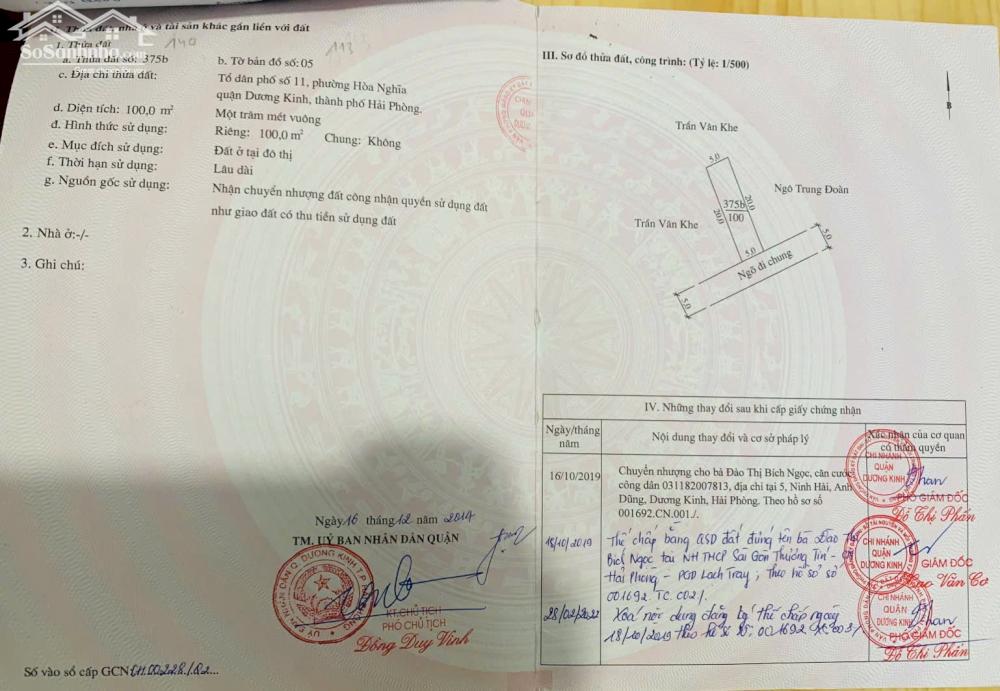 SoSanhnha.com
Thửa đất, nhà ở và tài sản khác gắn liền với đất
1. Thửa đất
140
113
a. Thửa đất số: 375b
b. Tờ bản đồ số: 05
c. Địa chỉ thửa đất:
Tổ dân phố số 11, phường Hòa Nghĩa
quận Dương Kinh, thành phố Hải Phòng.
d. Diện tích: 100,0 m²
Một trăm mét vuông
đ. Hình thức sử dụng:
Riêng: 100,0 m² Chung: Không
e. Mục đích sử dụng:
Đất ở tại đô thị
f. Thời hạn sử dụng:
Lâu dài
g. Nguồn gốc sử dụng:
Nhận chuyển nhượng đất công nhận quyền sử dụng đất
như giao đất có thu tiền sử dụng đất
2. Nhà ở:-/-
3. Ghi chú:
Ngày 16 tháng 12 năm 2017
TM. UỶ BAN NHÂN DÂN QUẬN
KT.CHỦ TỊCH
PHÓ CHỦ TỊCH
Đồng Duy Vinh
Số vào sổ cấp GCN:
III. Sơ đồ thửa đất, công trình: (Tỷ lệ: 1/500)
B
Trần Văn Khe
5,0
Ngô Trung Đoàn
20,0
375b
100
20,0
Trần Văn Khe
5,0
5,0
Ngõ đi chung
5,0
IV. Những thay đổi sau khi cấp giấy chứng nhận
Ngày/tháng năm
Nội dung thay đổi và cơ sở pháp lý
Xác nhận của cơ quan
có thẩm quyền
16/10/2019
Chuyển nhượng cho bà Đào Thị Bích Ngọc, căn cước
công dân 031182007813, địa chỉ tại 5, Ninh Hải, Anh
Dũng, Dương Kinh, Hải Phòng. Theo hồ sơ số
001692.CN.001./.
CHI NHÁNH
QUẬN
DƯƠNG KINH
PHÓ GIÁM ĐỐC
Đỗ Thị Phấn
18/10/2019
Thế chấp bằng QSD đất đứng tên bà Đào Thị
Bích Ngọc tại NH TMCP Sài Gòn Thương Tín -
Hải Phòng - PGD Lạch Tray; Theo hồ sơ số
001692.TC.002/.
CHI NHÁNH
QUẬN
DƯƠNG KINH
GIÁM ĐỐC
Cao Văn Cơ
28/02/2022
Xoá nội dung đăng ký thế chấp ngày
18/10/2019 theo hồ sơ số: 001692.XC.003/.
CHI NHÁNH
QUẬN
DƯƠNG KINH
PHÓ GIÁM ĐỐC
Đỗ Thị Phấn